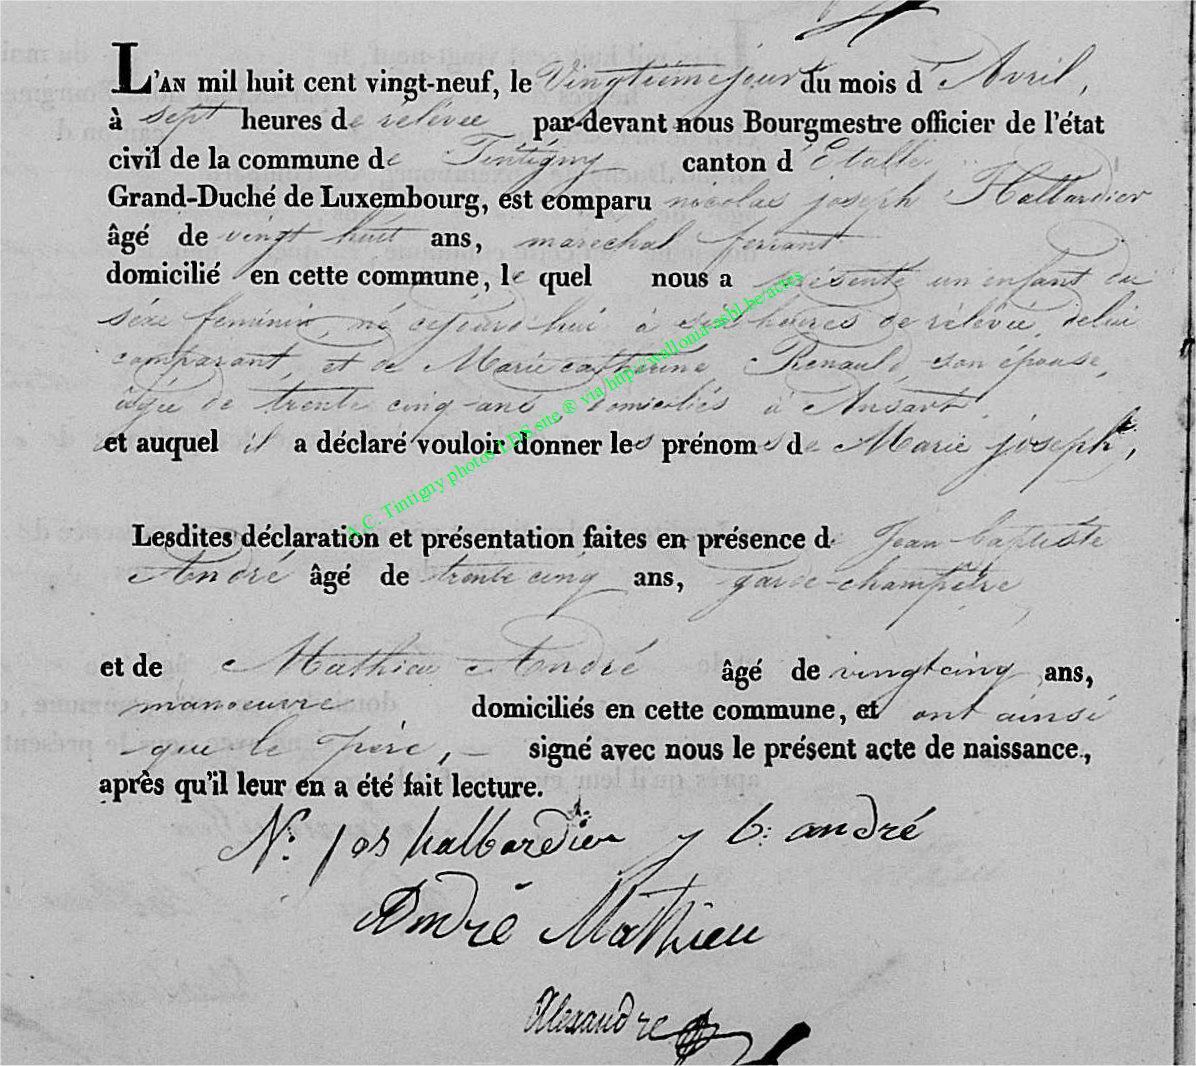 L'AN mil huit cent vingt-neuf, le Vingtieme jour du mois d'Avril,
à sept heures de rélévée par-devant nous Bourgmestre officier de l'état
civil de la commune de Tintigny canton d'Etalle
Grand-Duché de Luxembourg, est comparu nicolas joseph Halbardier
âgé de vingt huit ans, marechal ferrant
domicilié en cette commune, le quel nous a présenté un enfant du
séxe feminin, né cejourd'hui à six heures de rélévée de lui
comparant, et de Marie catherine Renauld, son épouse,
agée de trente cinq ans domiciliés à Ansart
et auquel il a déclaré vouloir donner les prénoms de Marie joseph,
Lesdites déclaration et présentation faites en présence de Jean baptiste
André âgé de trente cinq ans, garde-champêtre
et de Mathieu André âgé de vingt cinq ans,
manoeuvre domiciliés en cette commune, et ont ainsi
que le père, signé avec nous le présent acte de naissance,
après qu'il leur en a été fait lecture.
N: jos halbardier j b: andré
André Mathieu
Alexandre
A.C. Tintigny photos LDS site ® via http://wallonia-asbl.be/actes